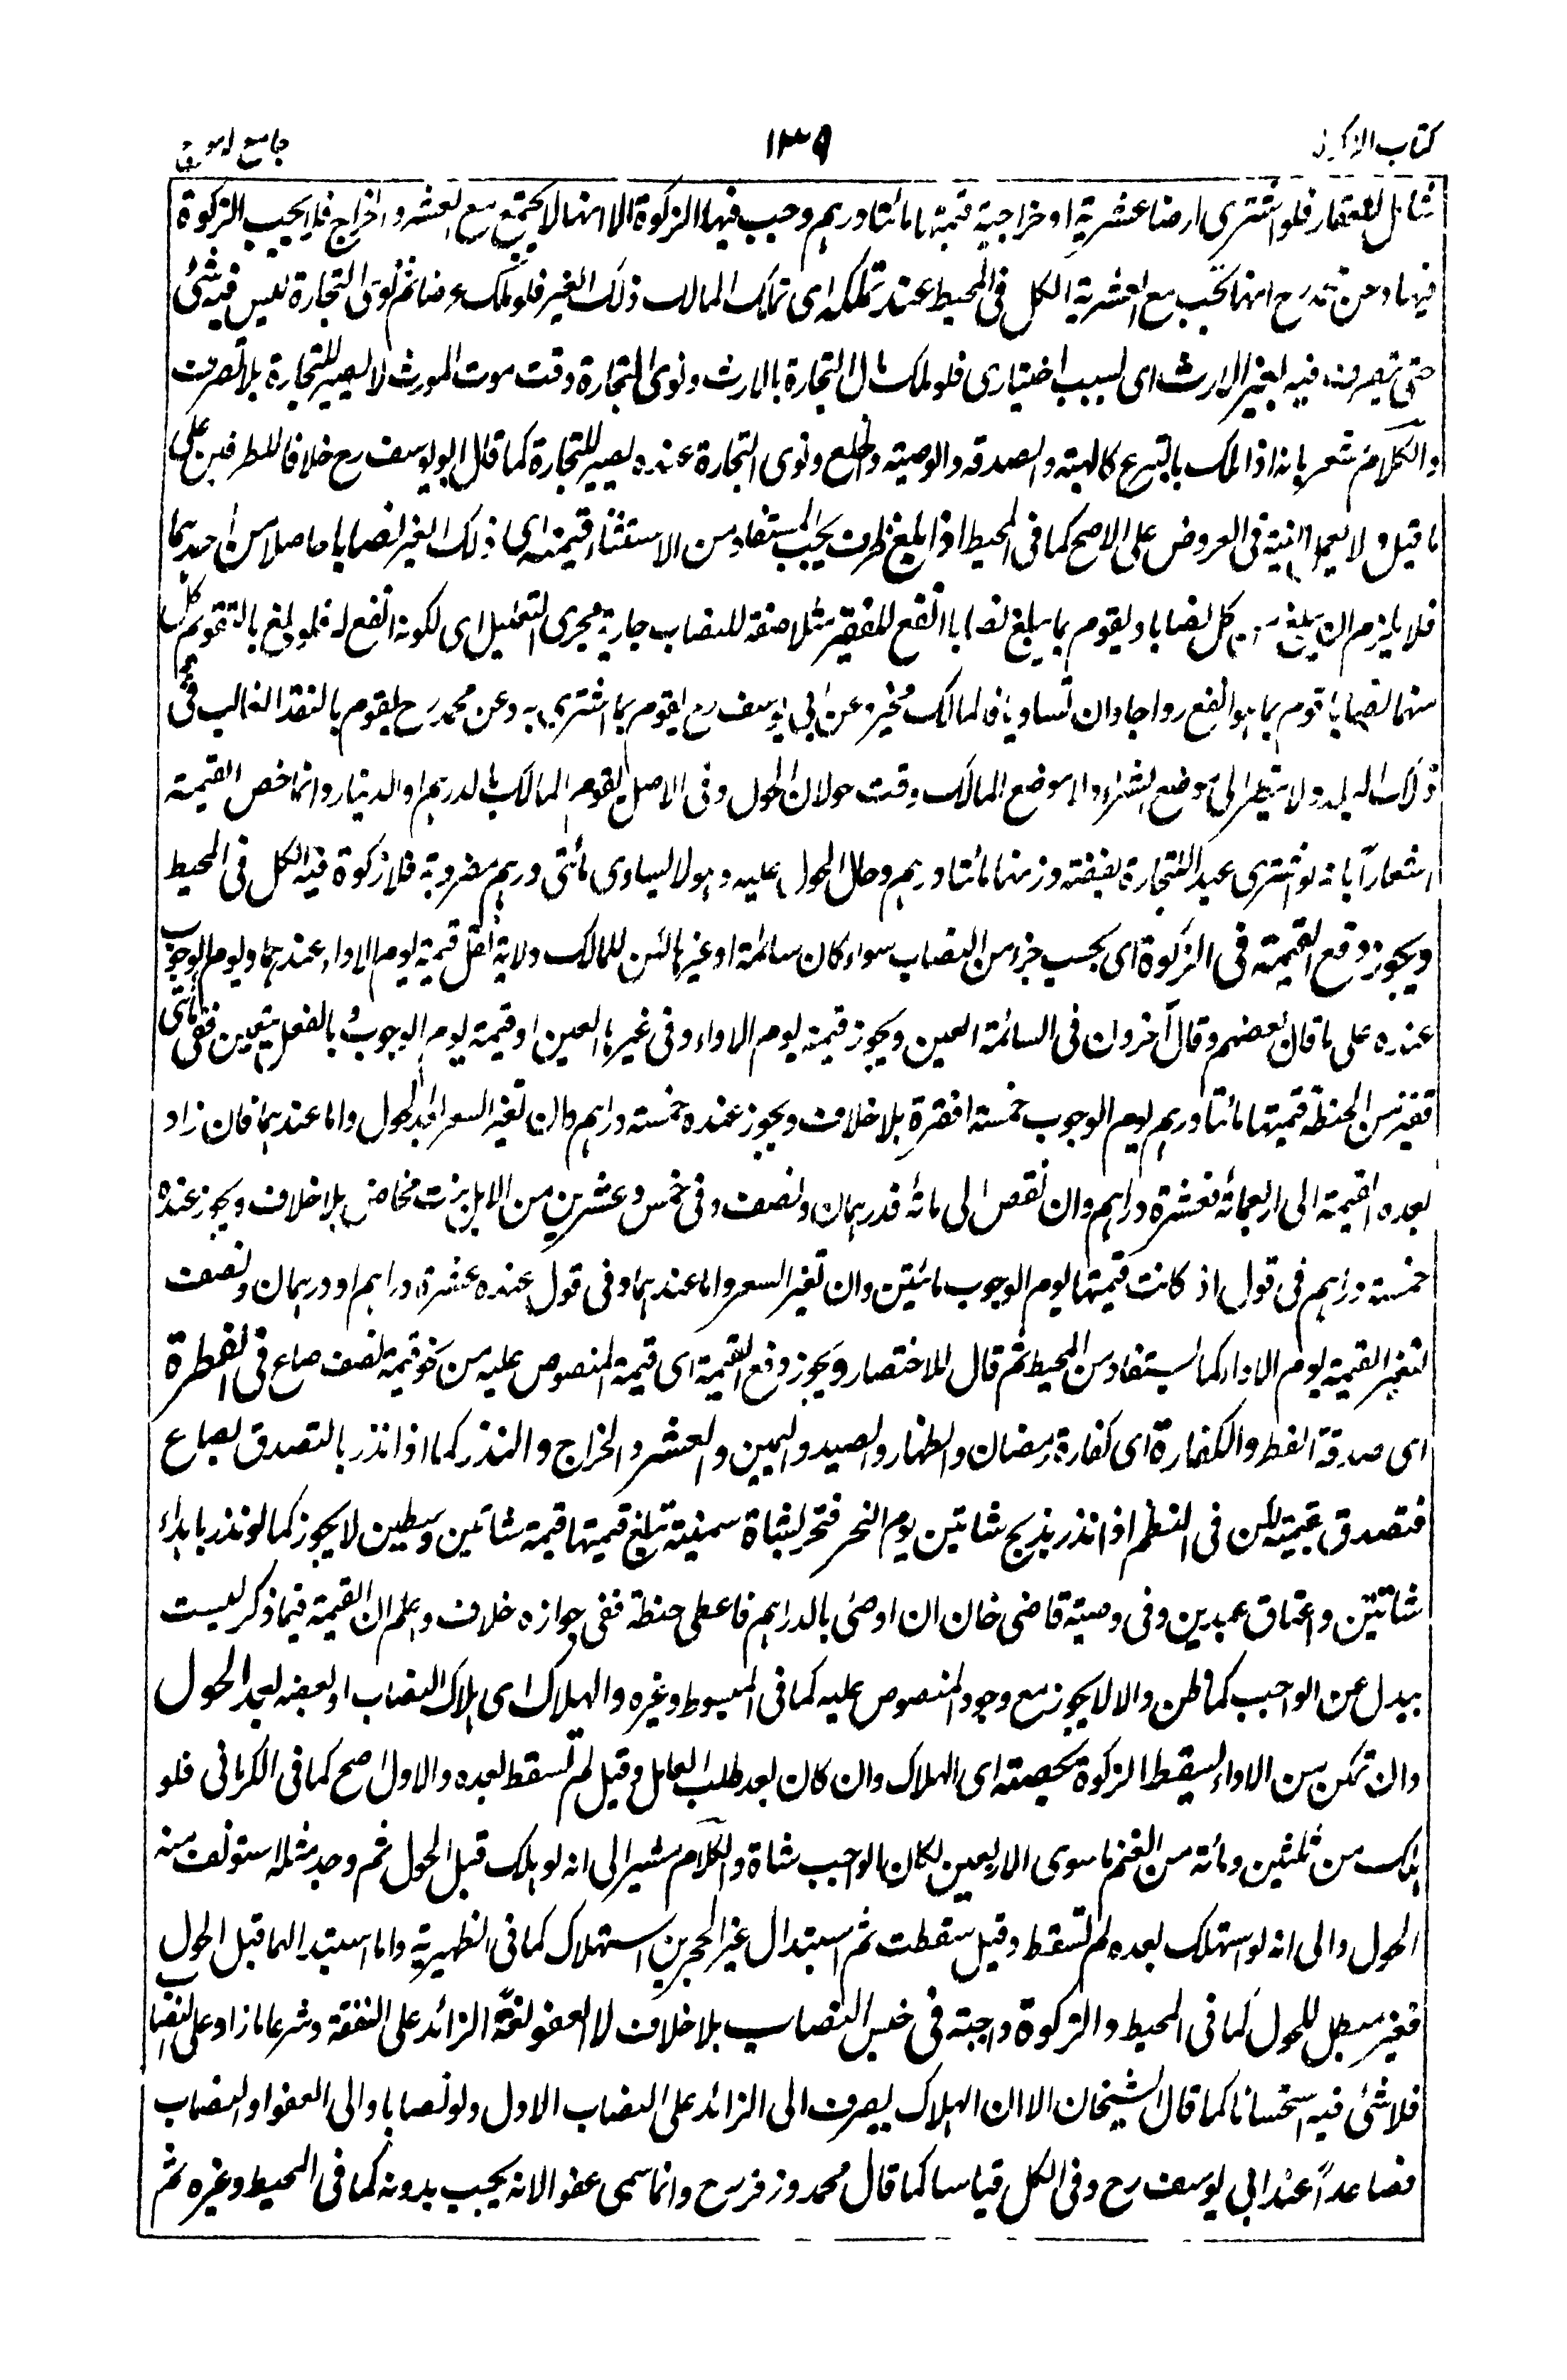 كتاب الزكوة
١٣٩
جامع الرموز
شامل للعقار فلو اشترى ارضا عشرية او خراجية قيمتها مائتا درهم وجب فيها الزكوة الا انها لا يجتمع مع العشر والخراج فلا يجب الزكوة
فيها وعن محمد رح انها تجب مع العشرية الكل فى المحيط عند تملكه اى تملك المالك ذلك الغير فلو ملك عرضا ثم نوى التجارة ليس فيه شئ
حتى يتصرف فيه بغير الارث اى بسبب اختيارى فلو ملك مال التجارة بالارث ونوى التجارة وقت موت المورث لا يصير للتجارة بلا تصرف
والكلام مشعر بانه اذا ملك بالتبرع كالهبة والصدقة والوصية والخلع ونوى التجارة عنده يصير للتجارة كما قال ابو يوسف رح خلافا للطرفين على
ما قيل ولا يعمل النية فى العروض على الاصح كما فى المحيط اذا بلغ ظرف يجب المستفاد من الاستثناء قيمته اى ذلك الغير نصابا حاصلا من احدهما
فلا يلزم ان يبلغ كل نصابا ويقوم بما يبلغ نصابا انفع للفقير مثلا صفة للنصاب جارية مجرى التعليل اى لكونه انفع له فلو بلغ بالتقويم كل
منهما نصابا قوم بما هو انفع رواجا وان تساويا فالمالك مخير وعن ابى يوسف رح يقوم بما اشترى به وعن محمد رح يقوم بالنقد الغالب فى
ذلك البلد ولا ينظر الى موضع الشراء والا موضع المالك وقت حولان الحول وفى الاصل يقوم المالك بالدرهم او الدينار وانما خص القيمة
اشعارا بانه لو اشترى عبدا للتجارة بفضة وزنها مائتا درهم وحال الحول عليه وهو لا يساوى مائتى درهم مضروبة فلا زكوة فيه الكل فى المحيط
ويجوز دفع القيمة فى الزكوة اى بحسب جزء من النصاب سواء كان سائمة او غيرها لكن للمالك ولاية نقل قيمة يوم الاداء عندهما ويوم الوجوب
عنده على ما قال بعضهم وقال آخرون فى السائمة العين ويجوز قيمته يوم الاداء وفى غيرها العين او قيمة يوم الوجوب بالفعل يتعين ففى مائتى
قفيز من الحنطة قيمتها مائتا درهم يوم الوجوب خمسة اقفزة بلا خلاف ويجوز عنده خمسة دراهم وان تغير السعر بعد الحول واما عندهما فان زاد
بعده القيمة الى اربعمائة فعشرة دراهم وان نقص الى مائة فدرهمان ونصف وفى خمس وعشرين من الابل بنت مخاض بلا خلاف ويجوز عنده
خمسة دراهم فى قول اذ كانت قيمتها يوم الوجوب مائتين وان تغير السعر واما عندهما وفى قول عنده عشرة دراهم او درهمان ونصف
لتغير القيمة يوم الاداء كما يستفاد من المحيط ثم قال للاختصار ويجوز دفع القيمة اى قيمة المنصوص عليه من نحو قيمة نصف صاع فى الفطرة
اى صدقة الفطر والكفارة اى كفارة رمضان والظهار والصيد واليمين والعشر والخراج والنذر كما اذا نذر بالتصدق بصاع
فتصدق بقيمته لكن فى النظم اذا نذر بذبح شاتين يوم النحر فنحر بشاة سمينة تبلغ قيمتها قيمة شاتين وسطين لا يجوز كما لو نذر باهداء
شاتين واعتاق عبدين وفى وصية قاضى خان ان اوصى بالدراهم فاعطى حنطة ففى جوازه خلاف واعلم ان القيمة فيما ذكر ليست
ببدل عن الواجب كما ظن والا لا يجوز مع وجود المنصوص عليه كما فى المبسوط وغيره والهلاك اى هلاك النصاب او بعضه بعد الحول
وان تمكن من الاداء يسقط الزكوة بحصته اى الهلاك وان كان بعد طلب العامل وقيل لم تسقط بعده والاول اصح كما فى الكرمانى فلو
هلك من ثلثين ومائة من الغنم ما سوى الاربعين لكان الواجب شاة والكلام مشير الى انه لو هلك قبل الحول ثم وجد مثله استونف منه
الحول والى انه لو استهلك بعده لم تسقط وقيل سقطت ثم استبدال غير الحجرين استهلاك كما فى الظهيرية واما استبدالهما قبل الحول
فغير مبطل للحول كما فى المحيط والزكوة واجبة فى خمس النصاب بلا خلاف لا العفو لغة الزائد على النفقة وشرعا ما زاد على النصاب
فلا شئ فيه استحسانا كما قال الشيخان الا ان الهلاك يصرف الى الزائد على النصاب الاول ولو نصابا والى العفو او النصاب
فصاعدا عند ابى يوسف رح وفى الكل قياسا كما قال محمد وزفر رح وانما سمى عفوا لانه يجب بدونه كما فى المحيط وغيره ثم